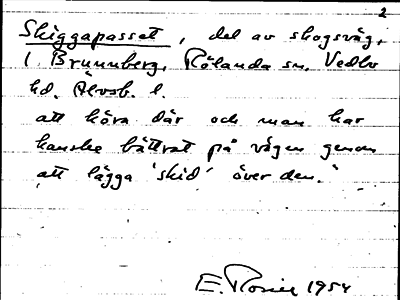 2
Skiggapasset, del av skogsväg,
l. Brunnberg, Rölanda sn, Vedbo
hd. Älvsb. l.
att köra där och man har
kanske bättrat på vägen genom
att lägga 'skid' över den."
E. Rosén 1954